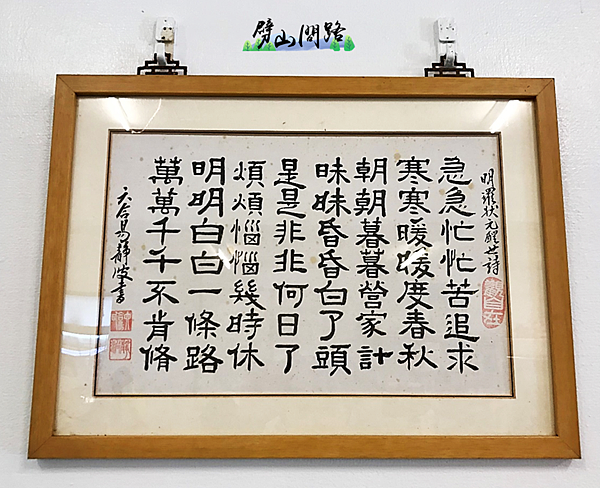 劈山問路
明羅狀元醒世詩
觀自在
急急忙忙苦追求
寒寒暖暖度春秋
朝朝暮暮營家計
昧昧昏昏白了頭
是是非非何日了
煩煩惱惱幾時休
明明白白一條路
萬萬千千不肯脩
六合易靜波書